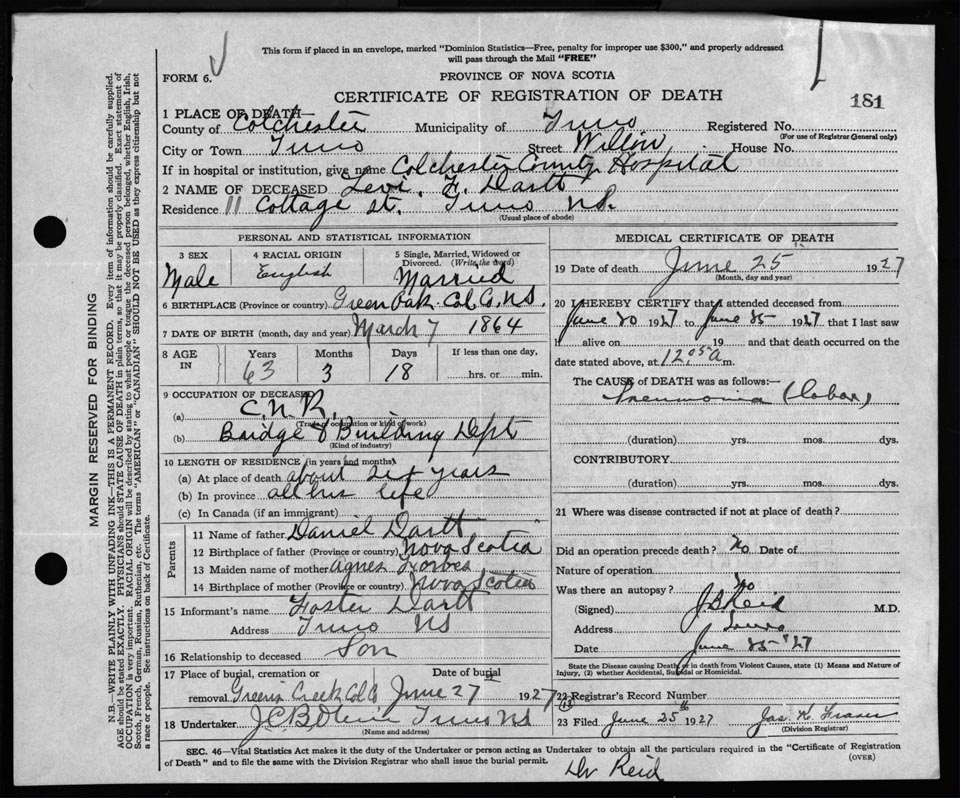 This form if placed in an envelope, marked "Dominion Statistics—Free, penalty for improper use $300," and properly addressed
will pass through the Mail "FREE"
FORM 6.
PROVINCE OF NOVA SCOTIA
CERTIFICATE OF REGISTRATION OF DEATH
181
1 PLACE OF DEATH—
County of Colchester Municipality of Truro Registered No.
(For use of Registrar General only)
City or Town Truro Street Willow House No.
If in hospital or institution, give name Colchester County Hospital
2 NAME OF DECEASED Levi F. Dartt
Residence 11 Cottage St. Truro N.S.
(Usual place of abode)
PERSONAL AND STATISTICAL INFORMATION
3 SEX 4 RACIAL ORIGIN 5 Single, Married, Widowed or
Divorced. (Write the word)
Male English Married
6 BIRTHPLACE (Province or country) Green Oak Col Co. N.S.
7 DATE OF BIRTH (month, day and year) March 7 1864
8 AGE IN Years Months Days If less than one day,
63 3 18 hrs. or min.
9 OCCUPATION OF DECEASED
(a) C.N.R.
(Trade of occupation or kind of work)
(b) Bridge & Building Dept
(Kind of industry)
10 LENGTH OF RESIDENCE (in years and months)
(a) At place of death about years
(b) In province all his life
(c) In Canada (if an immigrant)
Parents
11 Name of father Daniel Dartt
12 Birthplace of father (Province or country) Nova Scotia
13 Maiden name of mother Agnes Forbes
14 Birthplace of mother (Province or country) Nova Scotia
15 Informant's name Foster Dartt
Address Truro NS
16 Relationship to deceased Son
17 Place of burial, cremation or Date of burial
removal Greens Creek Col Co June 27 1927
18 Undertaker Truro NS
(Name and address)
MEDICAL CERTIFICATE OF DEATH
19 Date of death June 25 1927
(Month, day and year)
20 I HEREBY CERTIFY that I attended deceased from
June 20 1927 to June 25 1927 that I last saw
h alive on 19 and that death occurred on the
date stated above, at 12.05 a m.
The CAUSE of DEATH was as follows:—
Pneumonia (lobar)
(duration) yrs. mos. dys.
CONTRIBUTORY
(duration) yrs. mos. dys.
21 Where was disease contracted if not at place of death?
Did an operation precede death? no Date of
Nature of operation
Was there an autopsy? no
(Signed) J B Reid M.D.
Address Truro
Date June 25 '27
State the Disease causing Death, or in death from Violent Causes, state (1) Means and Nature of
Injury, (2) whether Accidental, Suicidal or Homicidal.
22 Registrar's Record Number
23 Filed June 25 1927 Jas. K. Fraser
(Division Registrar)
SEC. 46—Vital Statistics Act makes it the duty of the Undertaker or person acting as Undertaker to obtain all the particulars required in the "Certificate of Registration
of Death" and to file the same with the Division Registrar who shall issue the burial permit.
(OVER)
Dr Reid
MARGIN RESERVED FOR BINDING
N.B.—WRITE PLAINLY WITH UNFADING INK—THIS IS A PERMANENT RECORD. Every item of information should be carefully supplied.
AGE should be stated EXACTLY. PHYSICIANS should STATE CAUSE OF DEATH in plain terms, so that it may be properly classified. Exact statement of
OCCUPATION is very important. RACIAL ORIGIN will be described by stating to what people or tongue the deceased person belonged, whether English, Irish,
Scotch, French, German, Russian, Ruthenian, etc. The terms "AMERICAN" or "CANADIAN" SHOULD NOT BE USED as they express citizenship but not
a race or people. See instructions on back of Certificate.